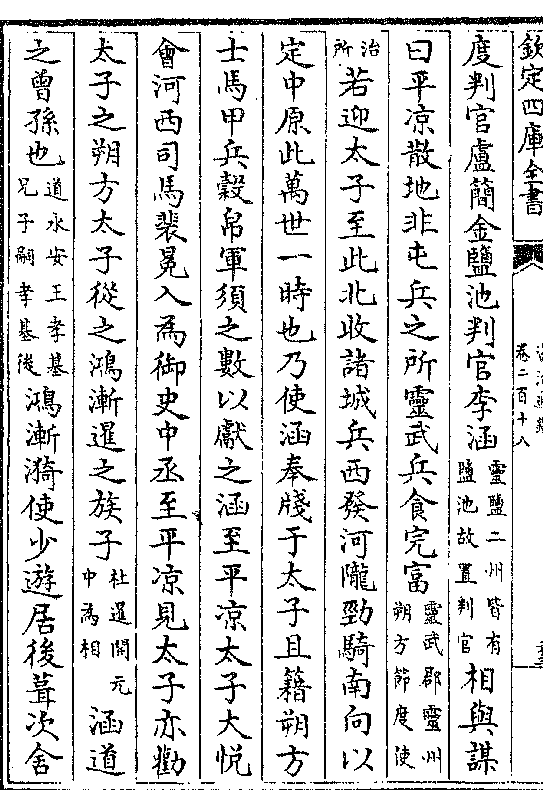 欽定四庫全書
卷二百十八
度判官盧簡金鹽池判官李涵靈鹽二州皆有鹽池故置判官相與謀
曰平凉散地非屯兵之所靈武兵食完富靈武郡靈州朔方節度使
治所若迎太子至此北收諸城兵西發河隴勁騎南向以
定中原此萬世一時也乃使涵奉牋于太子且籍朔方
士馬甲兵糓帛軍須之數以獻之涵至平凉太子大悦
會河西司馬裴冕入為御史中丞至平凉見太子亦勸
太子之朔方太子從之鴻漸暹之族子杜暹開元中為相涵道
之曾孫也道永安王孝基兄子嗣孝基後鴻漸漪使少遊居後葺次舍